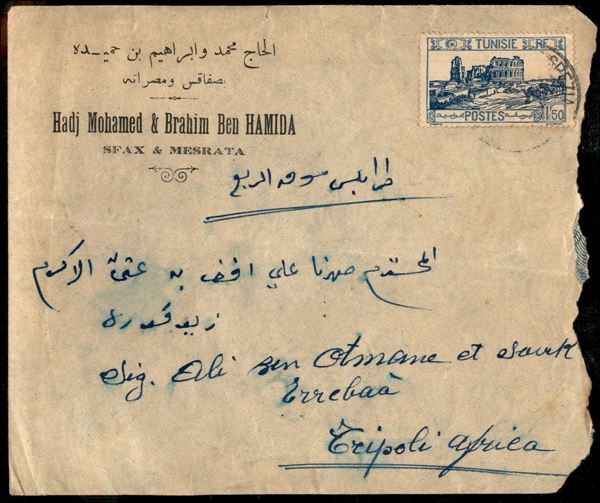 الحاج محمد وابراهيم بن حميده
بصفاقس ومصراته
Hadj Mohamed & Brahim Ben HAMIDA
SFAX & MESRATA
TUNISIE RF
POSTES 1F50
SPEZIA
طرابلس سوق الربع
المحترم صهرنا علي به الاكرم
Sig. Ali ben Otmane et Souk
Errebaà
Tripoli africa